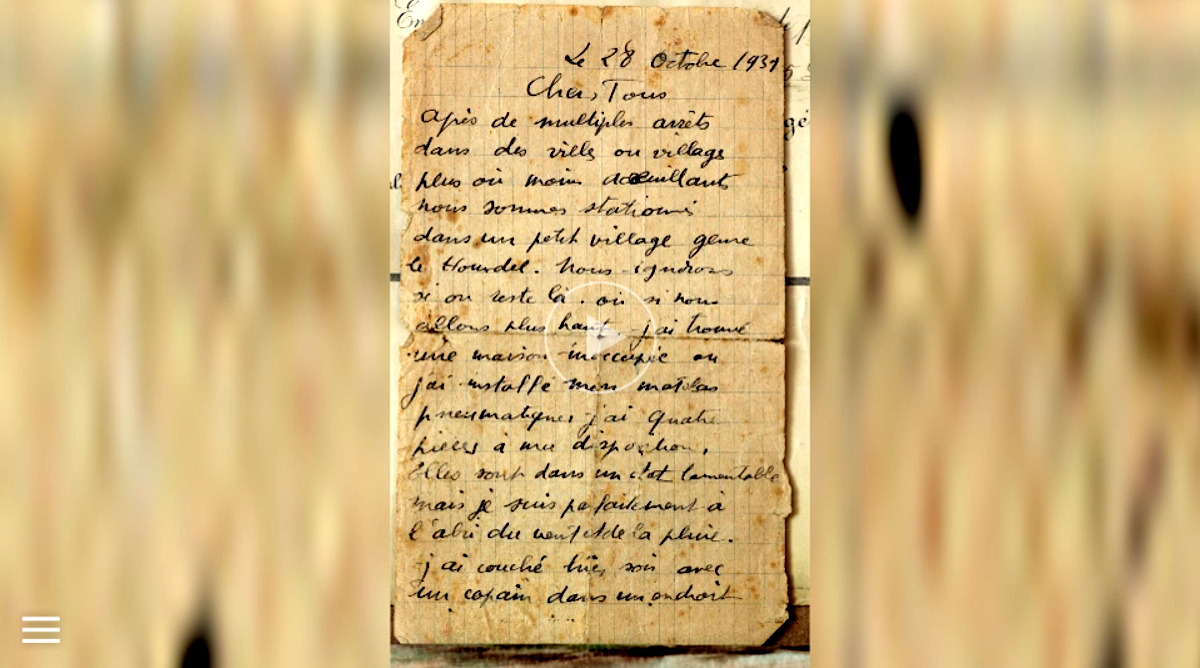 Le 28 Octobre 1939
Chers Tous
Après de multiples arrêts
dans des villes ou villages
plus ou moins accueillants
nous sommes stationnés
dans un petit village genre
le Hourdel. Nous ignorons
si on reste là. ou si nous
allons plus haut. j'ai trouvé
une maison inoccupée ou
j'ai installé mon matelas
pneumatique, j'ai quatre
pièces à ma disposition,
Elles sont dans un état lamentable
mais je suis parfaitement à
l'abri du vent et de la pluie.
j'ai couché hier soir avec
un copain dans un endroit